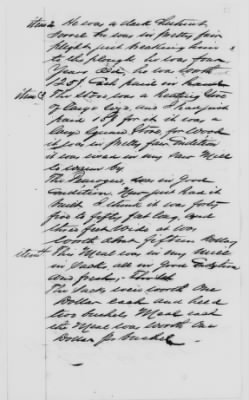 item 2 He was a dark Chestnut
Sorrel he was in pretty fair
plight just breaking him
to the plough he was four
Years Old, he was worth
item 3 The Stove was a heating Stove
of large size, and I had just
paid for it it was a
large Square Stove, for Wood
it was in pretty fair Condition
it was used in my New Mill
to warm by
The was in Good
Condition. Had just had it
built I think it was forty
five to fifty feet long, and
three feet wide it was
worth about fifteen Dollars
item This Meal was in my Mill
in Sacks, all in Good Condition
and fresh
The Sacks were worth One
Dollar each and held
two bushels Meal each
the Meal was worth One
Dollar per bushel